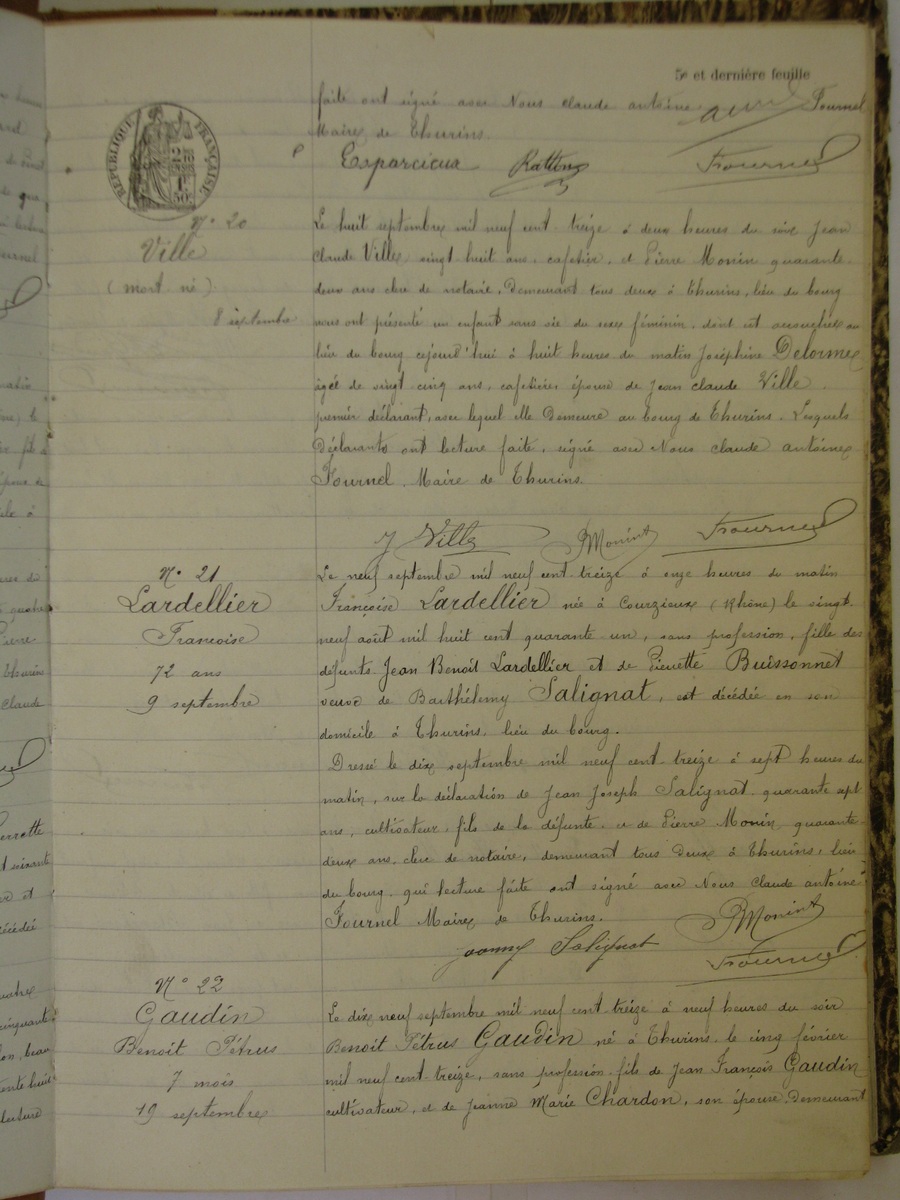 5e et dernière feuille
faite ont signé avec Nous Claude antoine Fournel
Maire de Thurins.
RÉPUBLIQUE FRANÇAISE
Esparcieux Fournel
N° 20
Ville
(mort né)
8 septembre
Le huit septembre mil neuf cent treize à deux heures du soir Jean
Claude Ville, vingt huit ans, cafetier, et Pierre Monin quarante
deux ans clerc de notaire, Demeurant tous deux à Thurins, lieu du bourg
nous ont présenté un enfant sans vie du sexe féminin, dont est accouchée au
lieu du bourg cejourd'hui à huit heures du matin Joséphine Delorme
agée de vingt cinq ans, cafetière, épouse de Jean Claude Ville
premier déclarant, avec lequel elle Demeure au bourg de Thurins. Lesquels
Déclarants ont lecture faite, signé avec Nous Claude antoine
Fournel. Maire de Thurins.
J Ville PMonin Fournel
N° 21
Lardellier
Francoise
72 ans
9 septembre
Le neuf septembre mil neuf cent treize à onze heures du matin
Françoise Lardellier née à Courzieux (Rhône) le vingt
neuf août mil huit cent quarante un, sans profession, fille des
défunts Jean Benoit Lardellier et de Pierrette Buissonnet
veuve de Barthélemy Salignat, est décédée en son
domicile à Thurins, lieu du bourg.
Dressé le dix septembre mil neuf cent treize à sept heures du
matin, sur la déclaration de Jean Joseph Salignat quarante sept
ans, cultivateur, fils de la défunte, et de Pierre Monin quarante
deux ans, clerc de notaire, demeurant tous Deux à Thurins, lieu
du bourg, qui lecture faite ont signé avec Nous Claude antoine
Fournel Maire de Thurins.
Joanny Salignat PMonin
Fournel
N° 22
Gaudin
Benoit Pétrus
7 mois
19 septembre
Le dix neuf septembre mil neuf cent treize à neuf heures du soir
Benoit Pétrus Gaudin né à Thurins le cinq février
mil neuf cent treize, sans profession fils de Jean François Gaudin
cultivateur, et de Jeanne Marie Chardon, son épouse, Demeurant